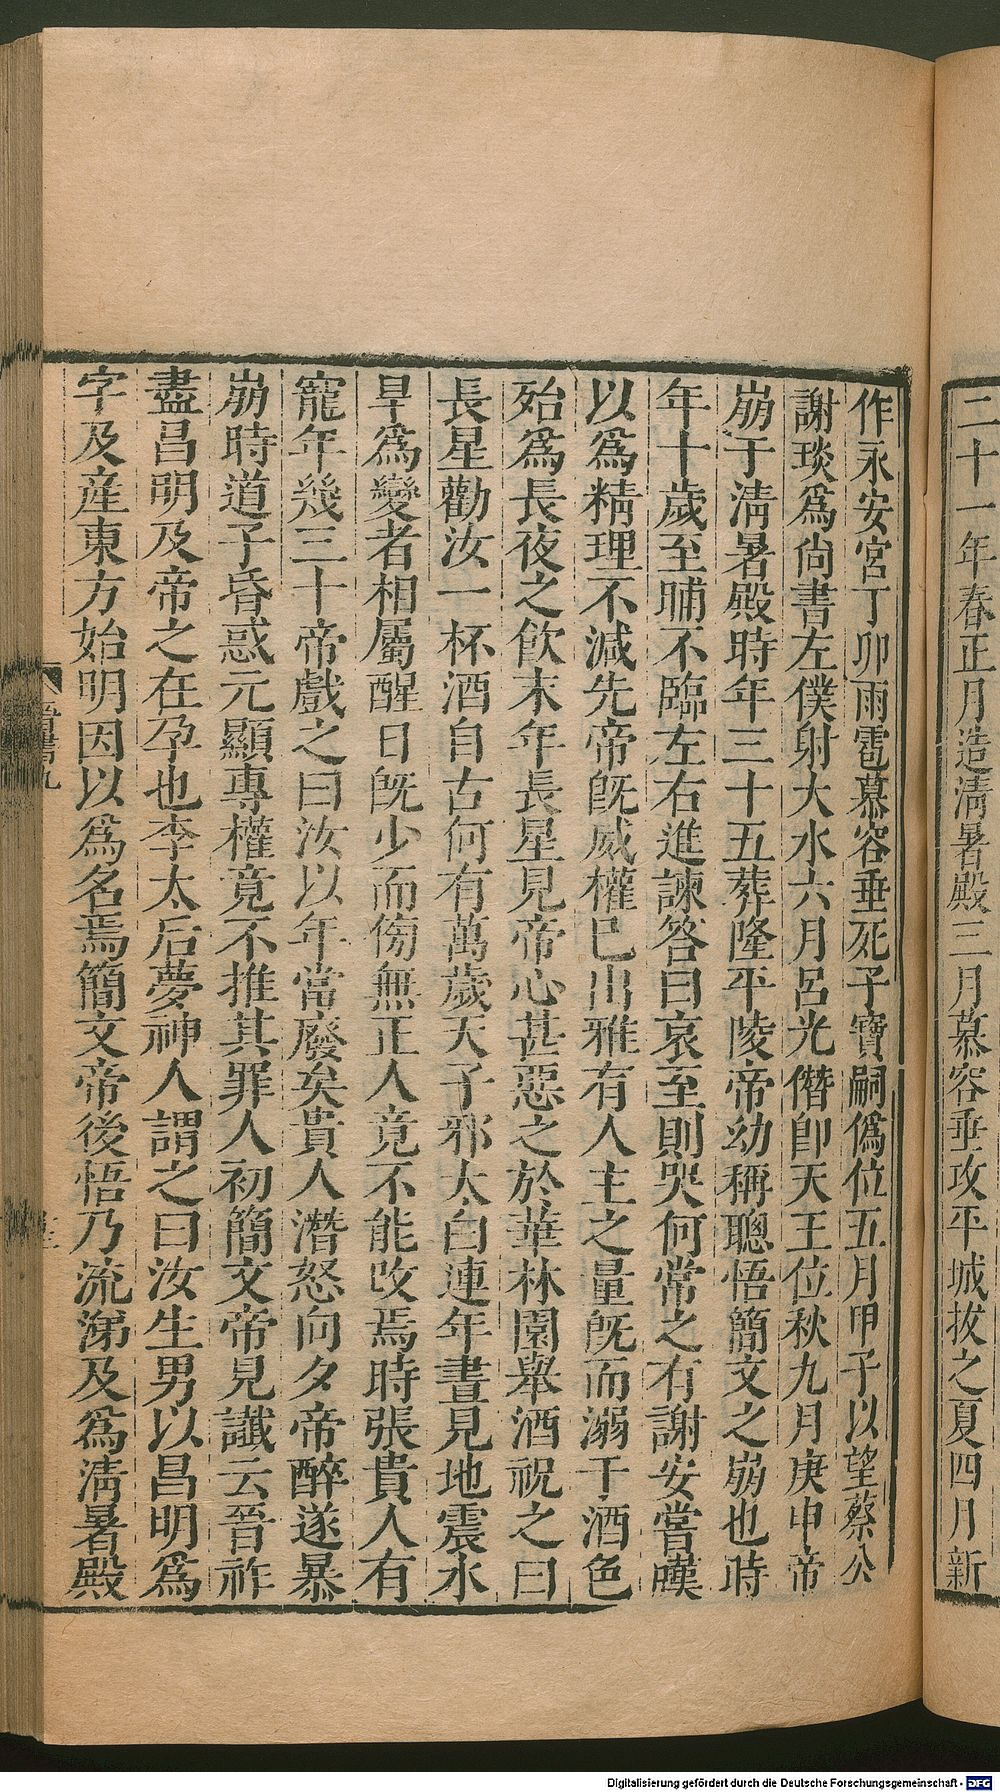 二十一年春正月造淸暑殿三月慕容垂攻平城拔之夏四月新
作永安宮丁卯雨雹慕容垂死子寶嗣僞位五月甲子以望蔡公
謝琰爲尙書左僕射大水六月呂光僭卽天王位秋九月庚申帝
崩于淸暑殿時年三十五葬隆平陵帝幼稱聰悟簡文之崩也時
年十歲至晡不臨左右進諫答曰哀至則哭何常之有謝安嘗嘆
以爲精理不減先帝旣威權已出雅有人主之量旣而溺于酒色
殆爲長夜之飮末年長星見帝心甚惡之於華林園舉酒祝之曰
長星勸汝一杯酒自古何有萬歲天子邪太白連年晝見地震水
旱爲變者相屬醒日旣少而傍無正人竟不能改焉時張貴人有
寵年幾三十帝戲之曰汝以年當廢矣貴人潛怒向夕帝醉遂暴
崩時道子昏惑元顯專權竟不推其罪人初簡文帝見讖云晉祚
盡昌明及帝之在孕也李太后夢神人謂之曰汝生男以昌明爲
字及產東方始明因以爲名焉簡文帝後悟乃流涕及爲淸暑殿
晉書九
Digitalisierung gefördert durch die Deutsche Forschungsgemeinschaft - DFG